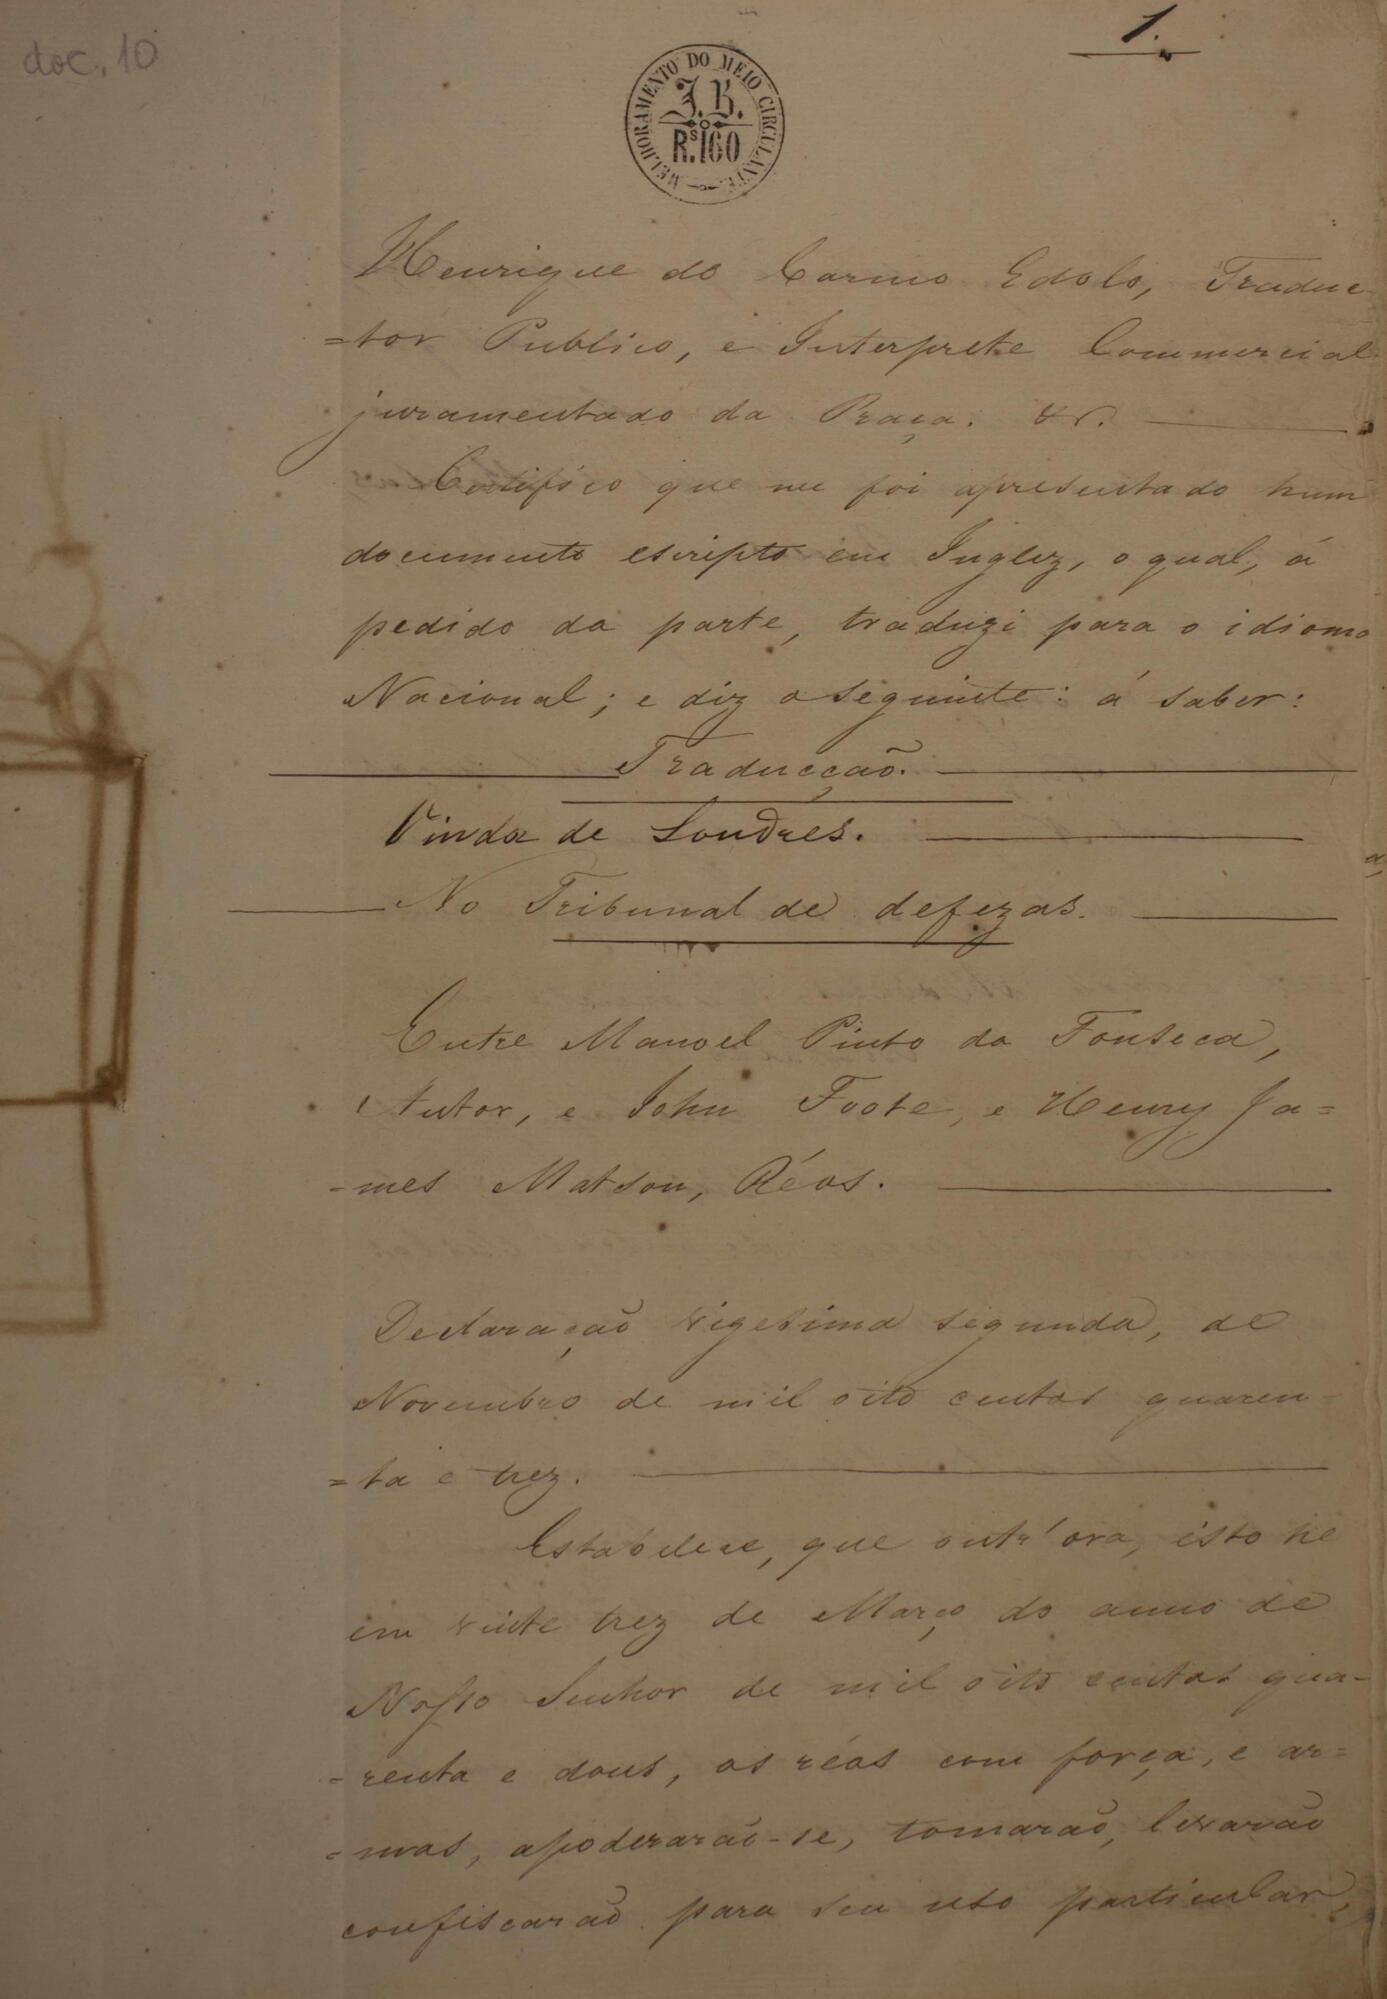 doc. 10
1.
MELHORAMENTO DO MEIO CIRCULANTE
J. B.
Rs. 160
Henrique do Carmo Edolo, Traduc-
=tor Publico, e Interprete Commercial
juramentado da Praça. &r.
Certifico que me foi apresentado hum
documento escripto em Inglez, o qual, á
pedido da parte, traduzi para o idioma
Nacional; e diz o seguinte: á saber:
Traducção.
Vinda de Londres.
No Tribunal de defezas.
Entre Manoel Pinto da Fonseca,
Autor, e John Foote, e Henry Ja=
-mes Matson, Réos.
Declaração vigesima segunda, de
Novembro de mil oito centos quaren-
=ta e trez.
que outr'ora, isto he
em vinte trez de Março do anno de
Nosso Senhor de mil oito centos qua-
-renta e dous, os réos com força, e ar=
-mas, apoderarão-se, tomarão, levarão
confiscarão para seu uso particular,